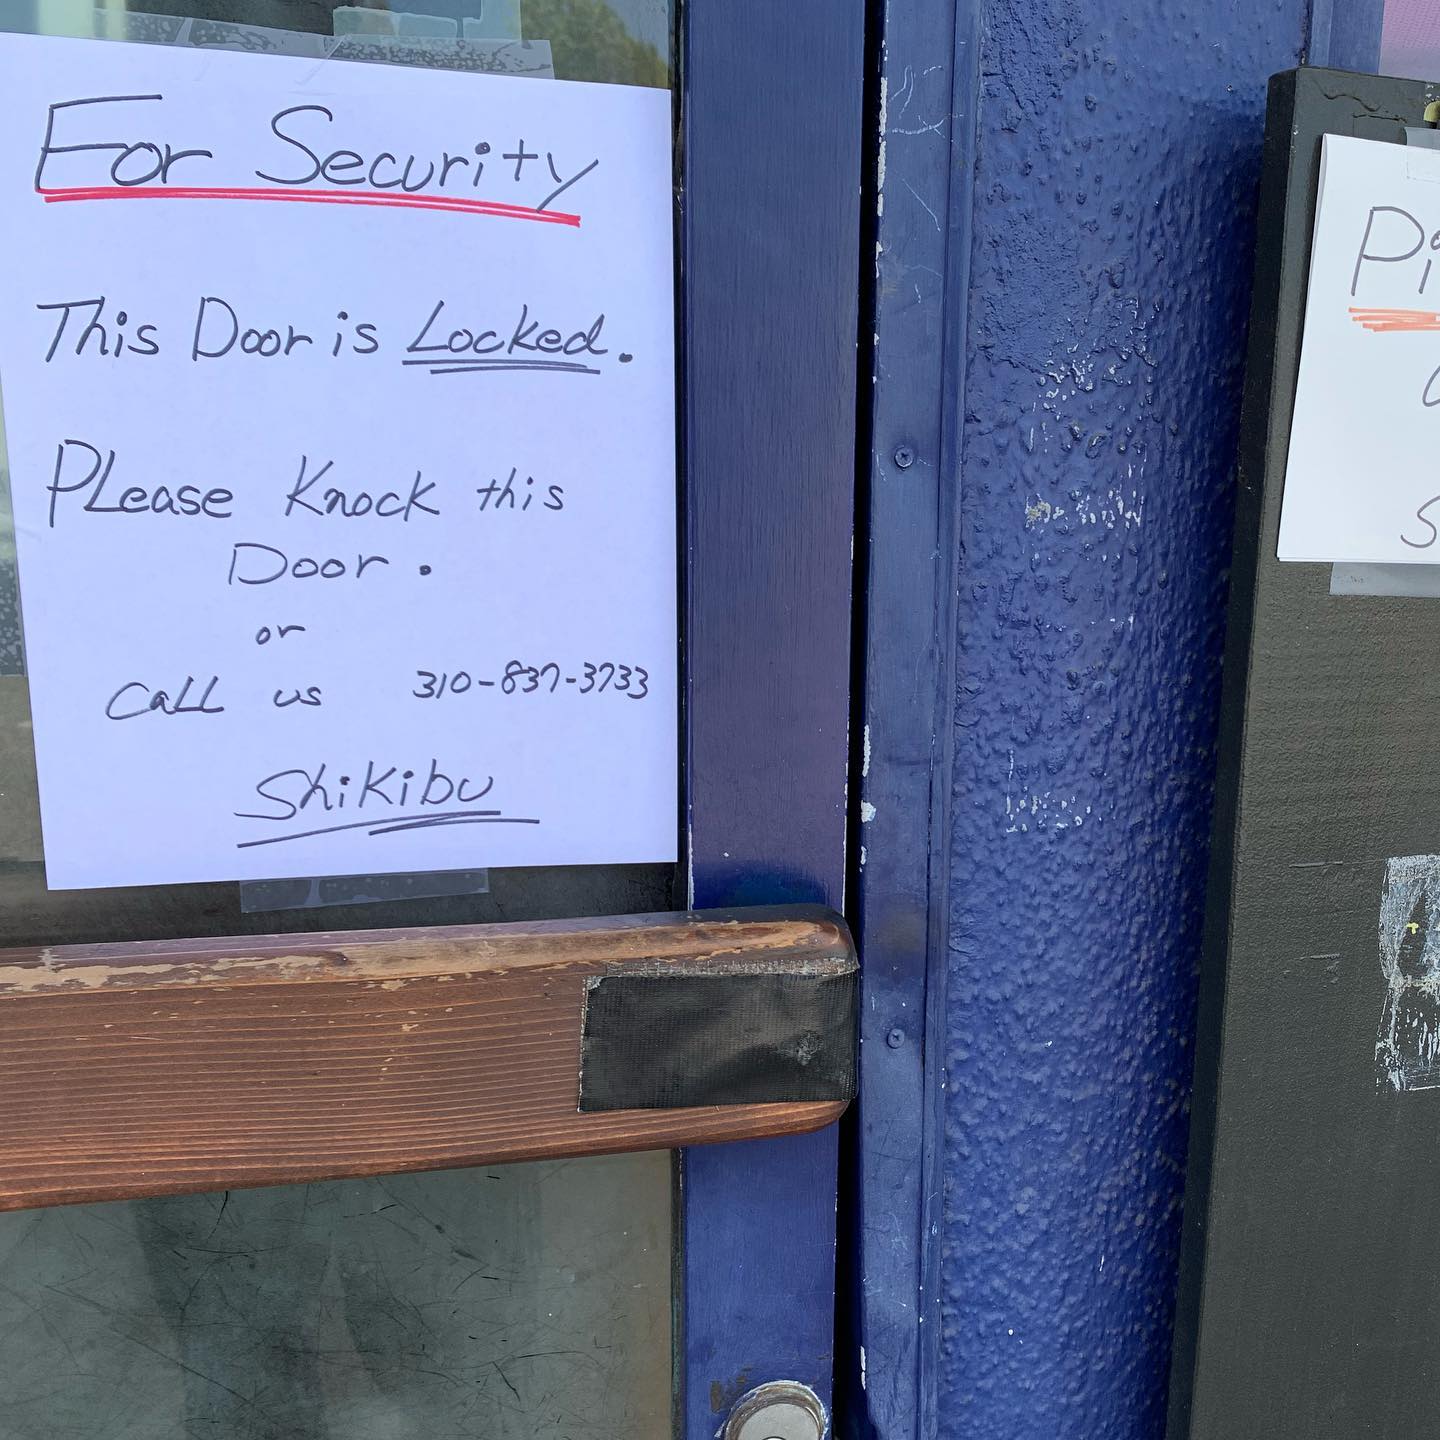 For Security
This Door is Locked.
PLease Knock this
Door.
or
CaLL us 310-837-3733
Shikibu